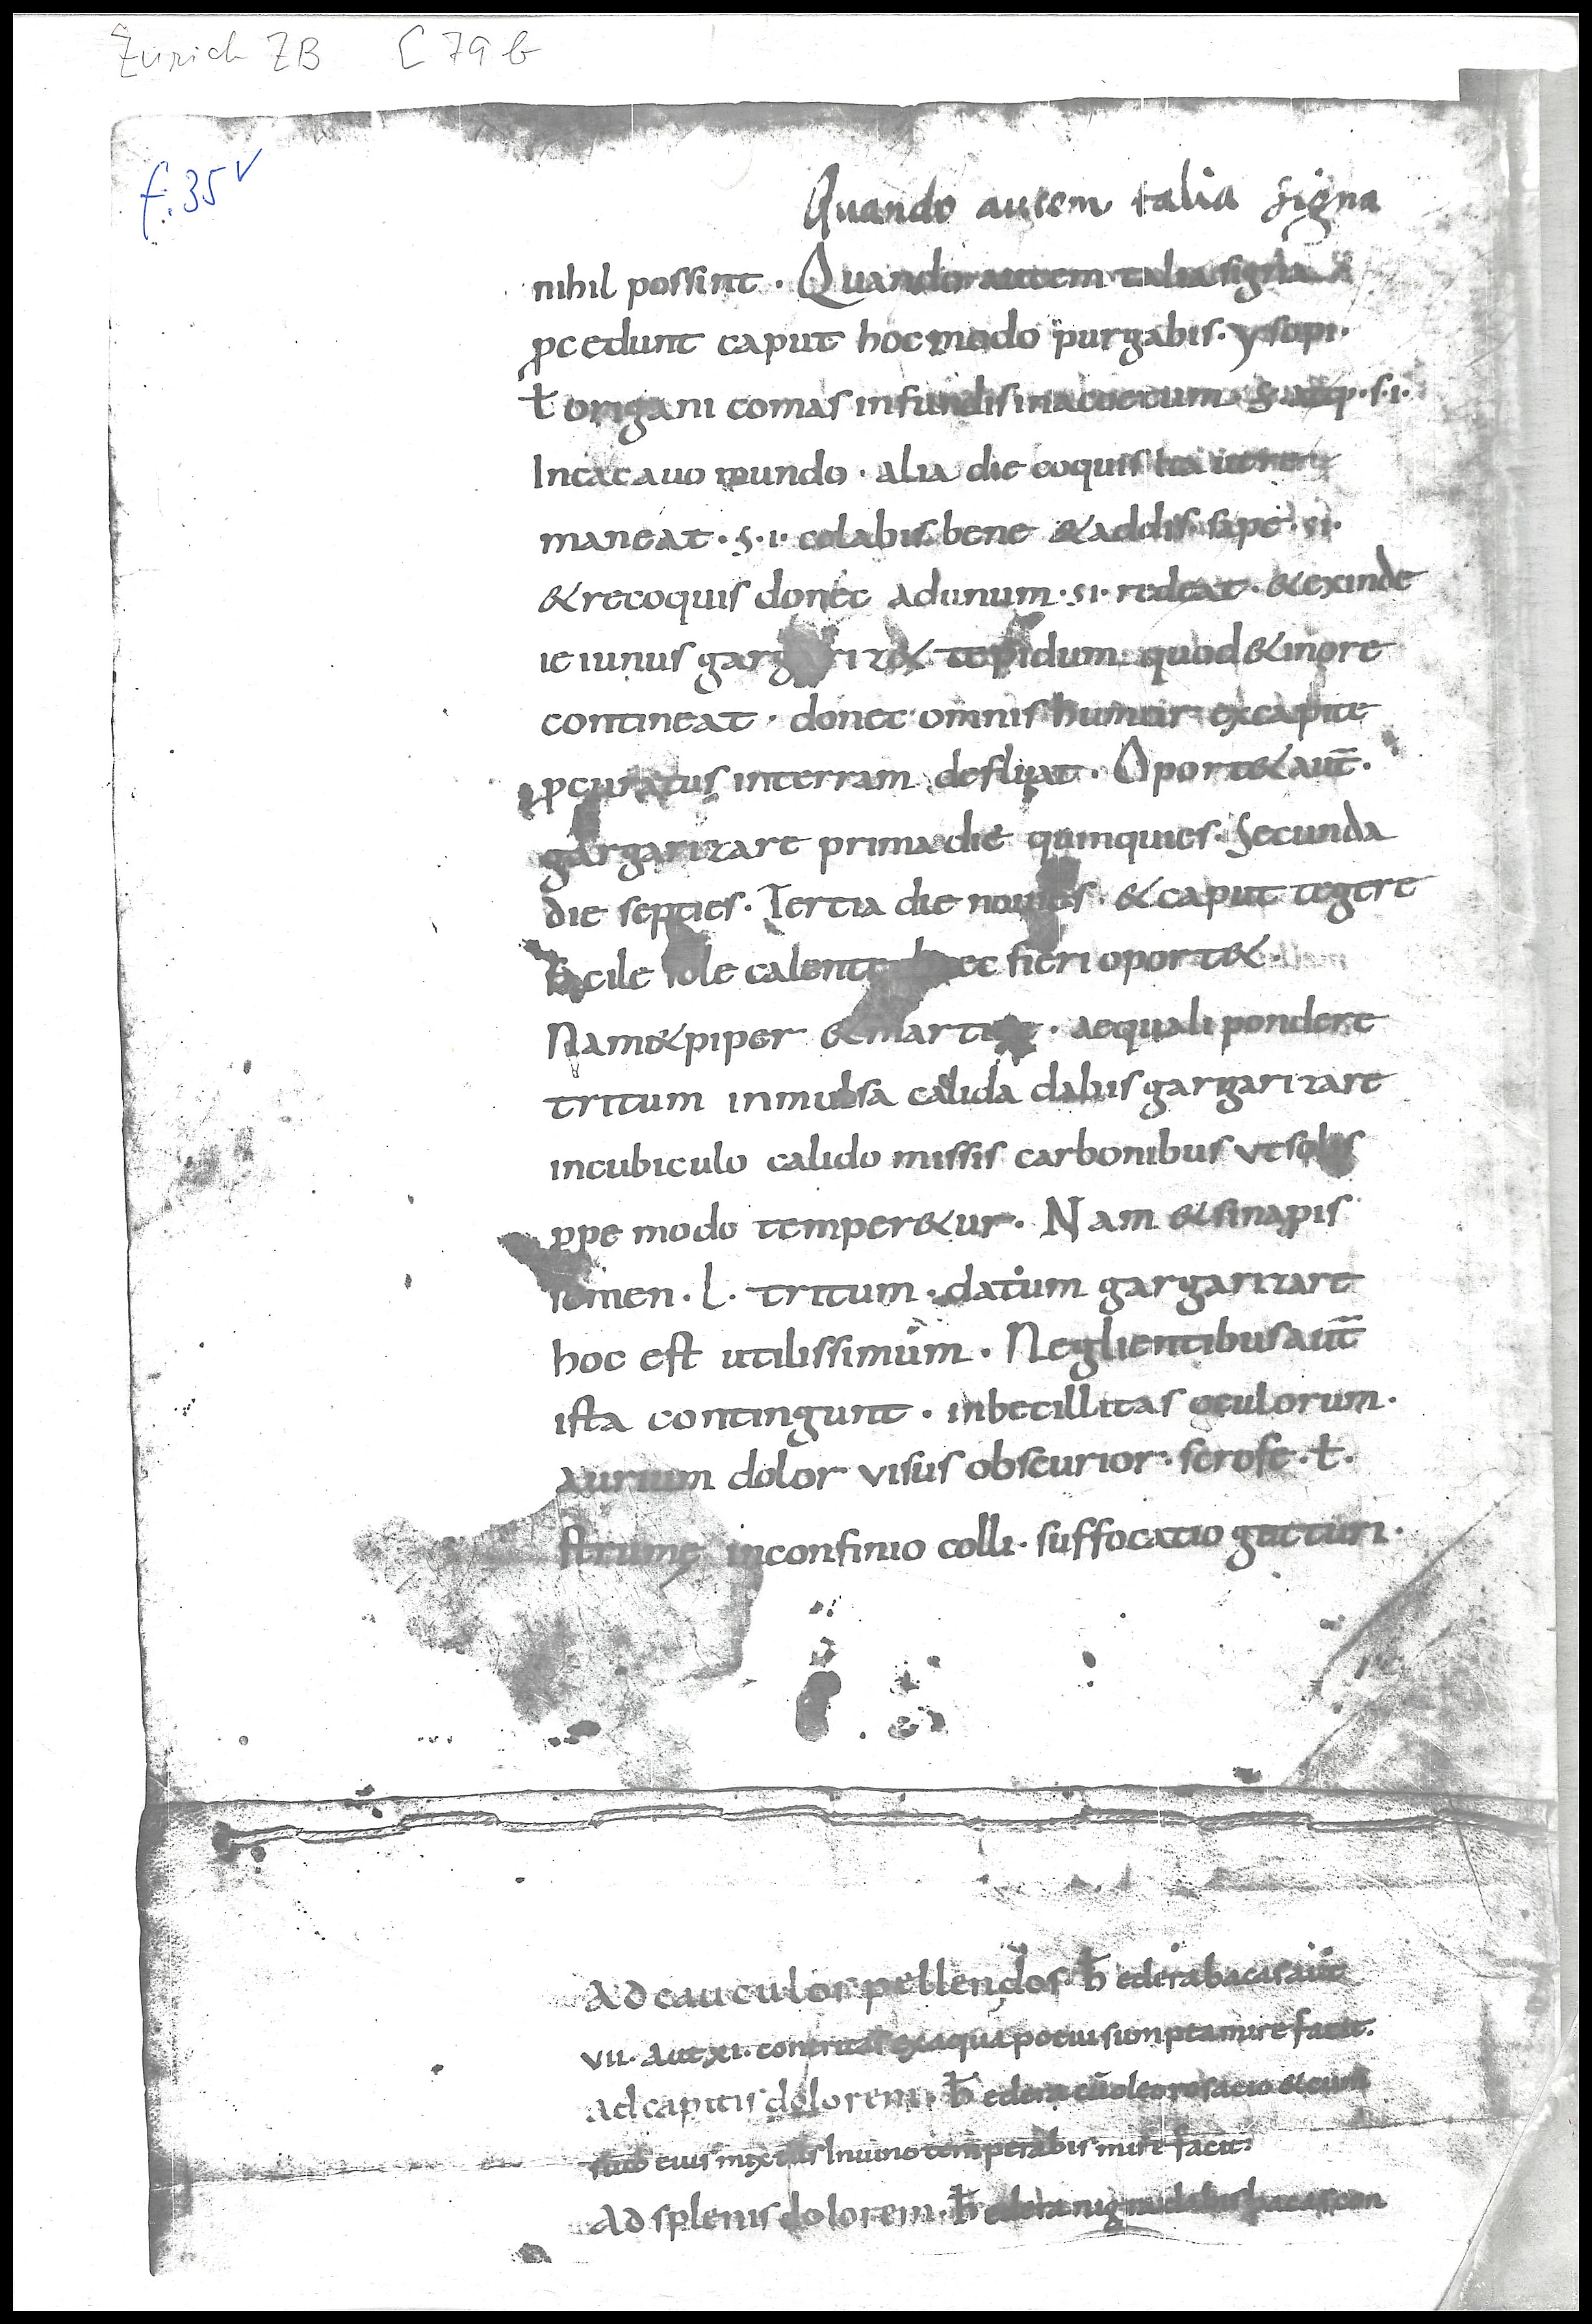 Zürich ZB C 79 b
f. 35v
Quando autem talia signa
nihil possint . Quando autem talia signa
ꝓcedunt caput hoc modo purgabis. ysopi.
ł origani comas infundis in acaetum
Incacauo mundo . alia die coquis
maneat . s . i . colabis bene & addis sape . si .
& recoquis donec adunum . si . redeat . & exinde
ieiunus gargariz& tepidum quod & inore
contineat . donec omnis humor excapite
ꝓcuratus interram defluat . Oport& aut̄ .
gargarizare prima die quinquies . Secunda
die septies . Tertia die nouies & caput tegere
facile sole calente hec fieri oport& .
Nam & piper & . aequali pondere
tritum inmulsa calida dabis gargarizare
incubiculo calido missis carbonibus ut solis
ꝓpe modo temper&ur . Nam & sinapis
semen . l . tritum . datum gargarizare
hoc est utilissimum . Neglientibus aut̄
ista contingunt . inbecillitas oculorum .
aurium dolor visus obscurior . serose . ł .
strumę inconfinio colli . suffocatio gutturi .
Ad cauculos pellendos . ħ edera bacas aut
vii . aut xi . contritas exaqua potui sumpta mire facit .
ad capitis dolorem . ħ edera cū oleo rosacio & cum
suco eius mixtus Inuino temperabis mire facit .
Ad splenis dolorem . ħ edera nigra dabis bacas con